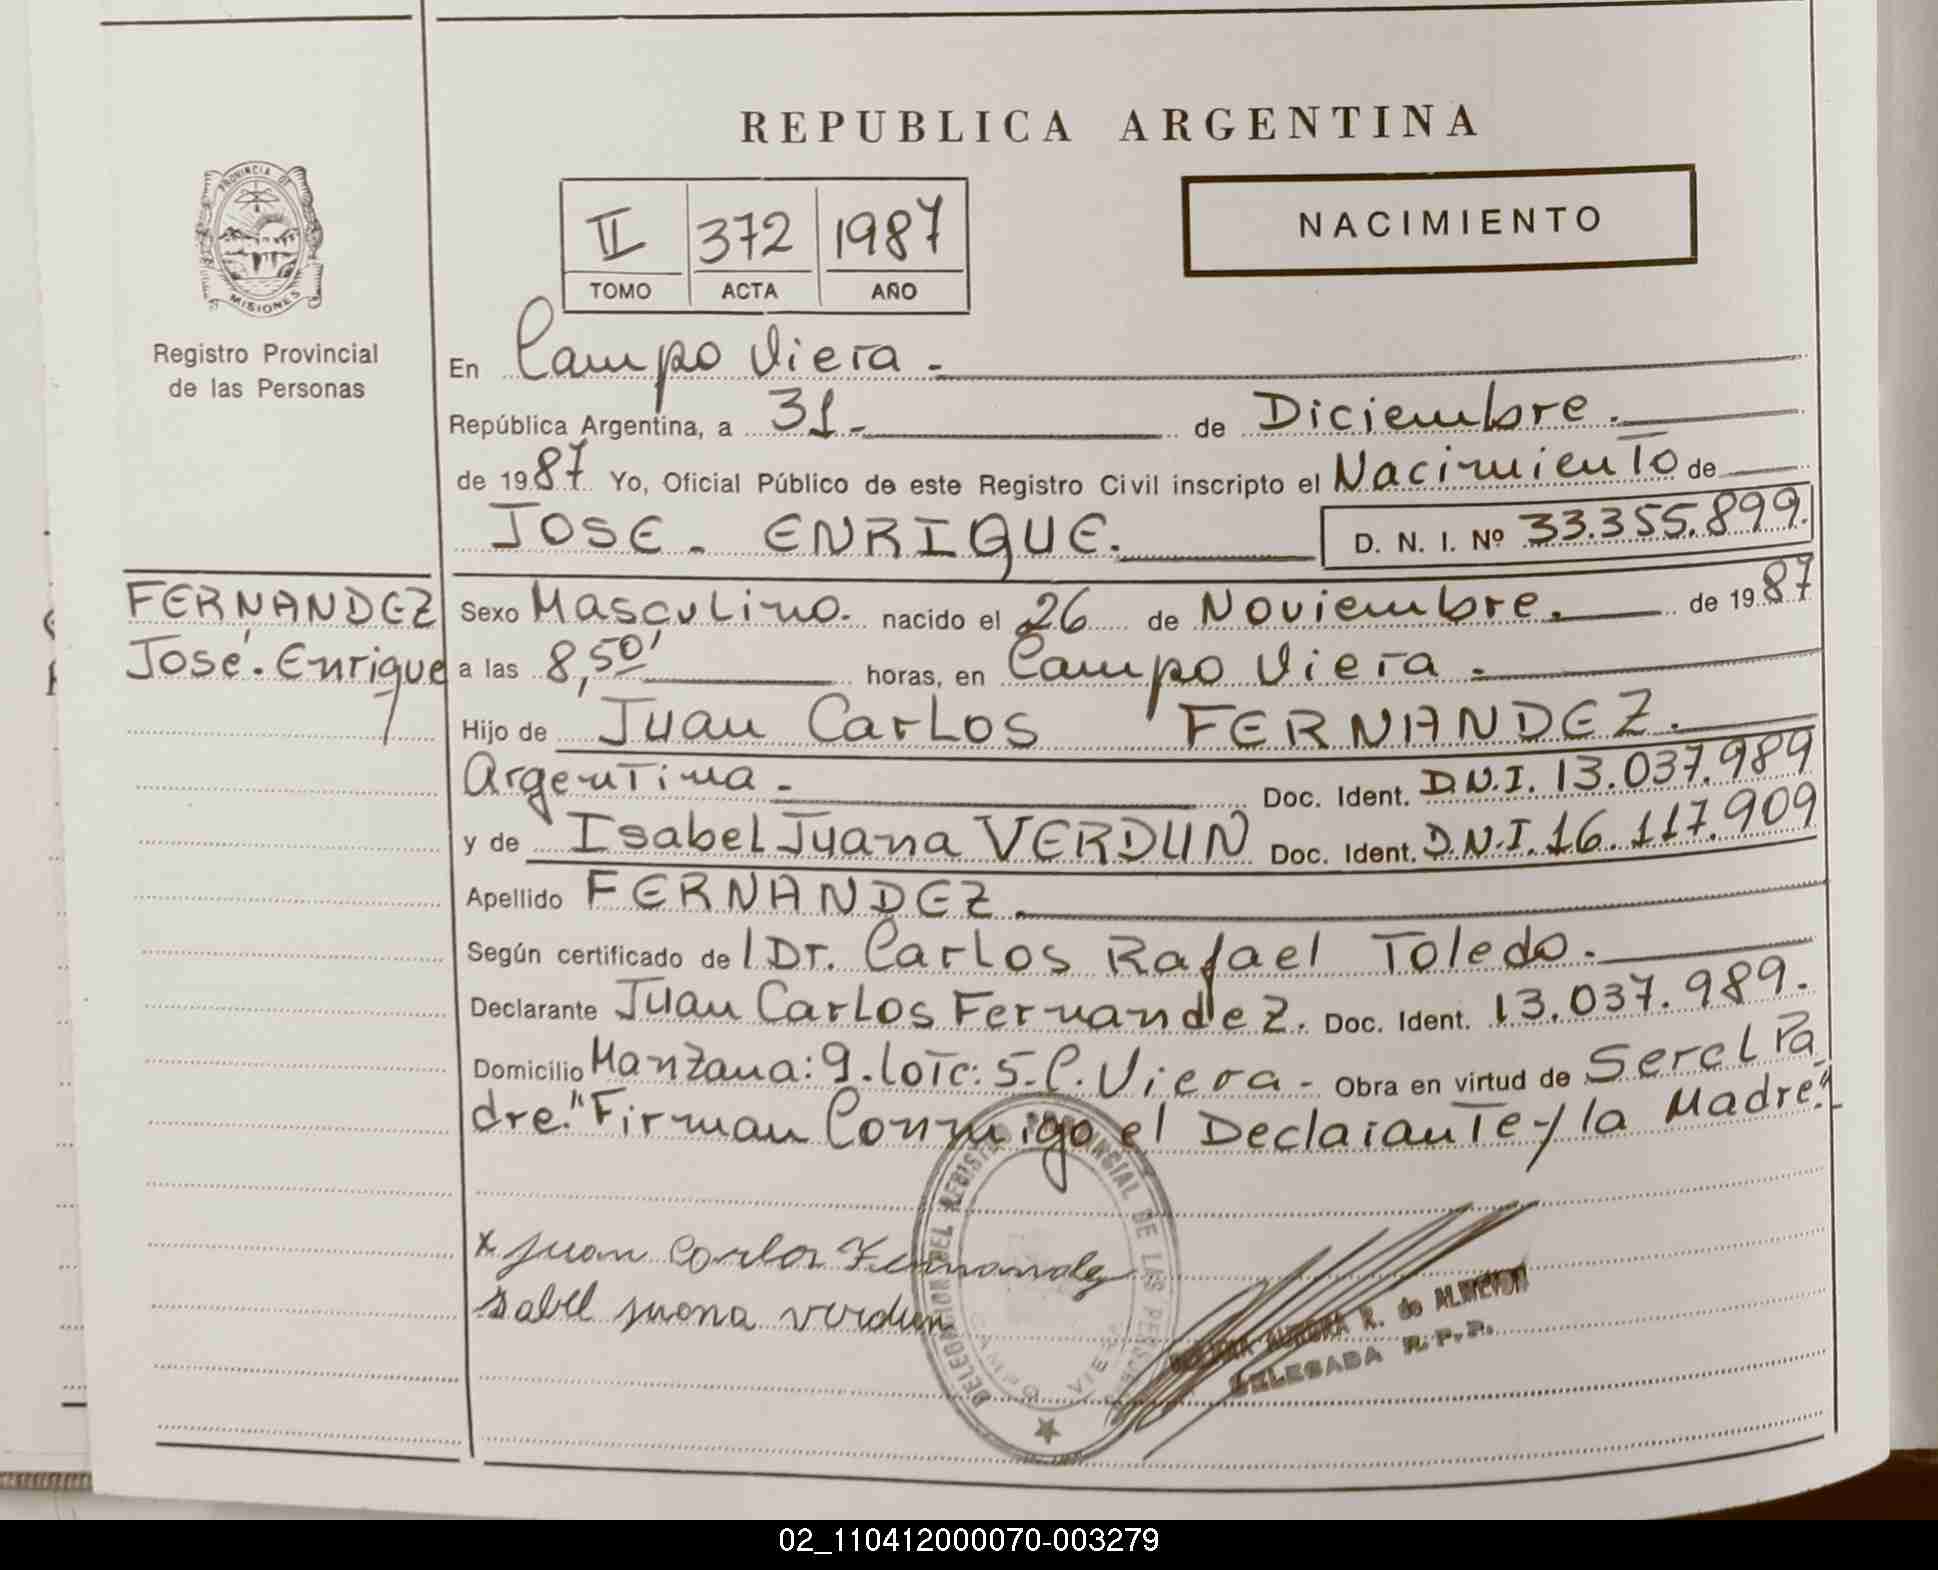 REPUBLICA ARGENTINA
PROVINCIA DE MISIONES
Registro Provincial
de las Personas
II 372 1987
TOMO ACTA AÑO
NACIMIENTO
En Campo Viera.
República Argentina, a 31 de Diciembre.
de 1987 Yo, Oficial Público de este Registro Civil inscripto el Nacimiento de
JOSE. ENRIQUE. D. N. I. Nº 33.355.899.
FERNANDEZ
José. Enrique
Sexo Masculino. nacido el 26 de Noviembre. de 1987
a las 8,50' horas, en Campo Viera.
Hijo de Juan Carlos FERNANDEZ.
Argentina. Doc. Ident. D.N.I. 13.037.989
y de Isabel Juana VERDUN Doc. Ident. D.N.I. 16.117.909
Apellido FERNANDEZ.
Según certificado de l Dr. Carlos Rafael Toledo.
Declarante Juan Carlos Fernandez. Doc. Ident. 13.037.989.
Domicilio Manzana: 9. lote: 5. C. Viera - Obra en virtud de Ser el Pa
dre. "Firman Conmigo el Declarante y la Madre."
x Juan Carlos Fernandez
Isabel juana verdun
DELEGACION DEL REGISTRO PROVINCIAL DE LAS PERSONAS
CAMPO VIERA
AURORA R. de ALMEYON
DELEGADA R. P. P.
02_110412000070-003279